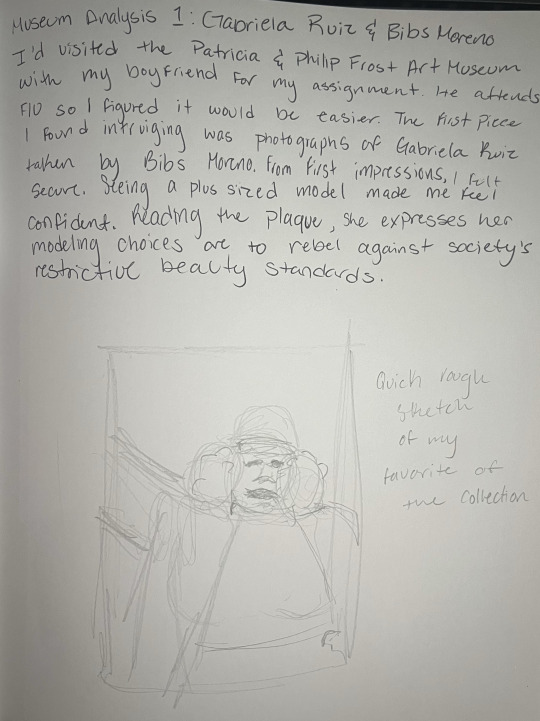 Museum Analysis 1: Gabriela Ruiz & Bibs Moreno
I'd visited the Patricia & Philip Frost Art Museum
with my boyfriend for my assignment. He attends
FIU so I figured it would be easier. The first piece
I found intruiging was photographs of Gabriela Ruiz
taken by Bibs Moreno. From first impressions, I felt
secure. Seeing a plus sized model made me feel
confident. Reading the plaque, she expresses her
modeling choices are to rebel against society's
restrictive beauty standards.
Quick rough
sketch
of my
favorite of
the collection